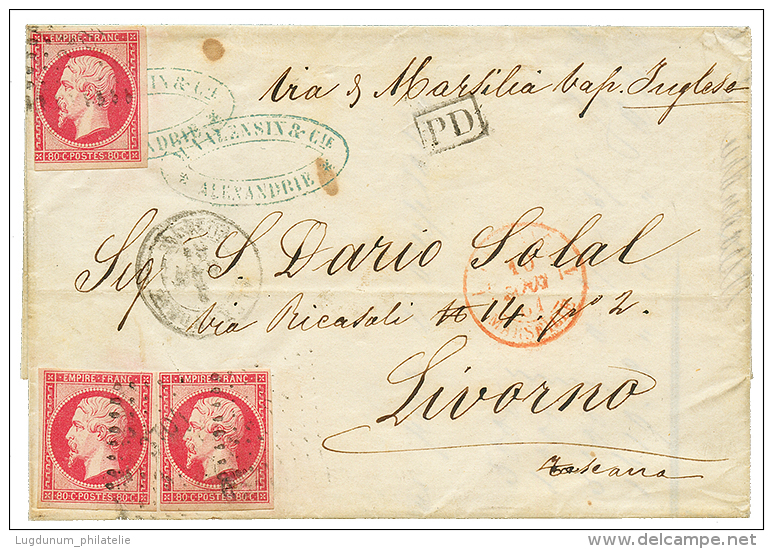 EMPIRE FRANC
80·C·POSTES·80·C
M. VALENSIN & CIE
ALEXANDRIE
Via d Marsilia vap. Inglese
PD
Sig. S. Dario Solal
Via Ricasoli # 14. p.º 2.
Livorno
Toscana
MARSEILLE
EMPIRE FRANC
80·C·POSTES·80·C
EMPIRE FRANC
80·C·POSTES·80·C
Lugdunum_philatelie
delcampe.net